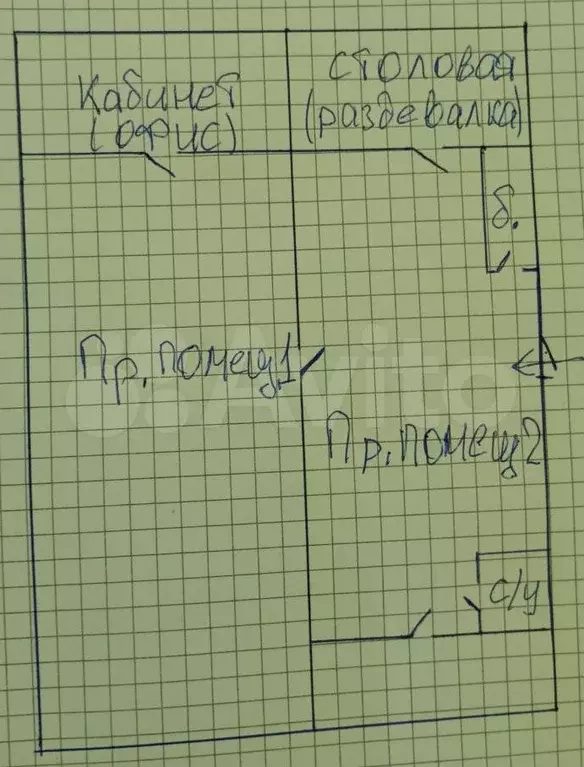 Кабинет
(офис)
столовая
(раздевалка)
б.
Пр. помещ1
Пр. помещ2
с/у
Avito